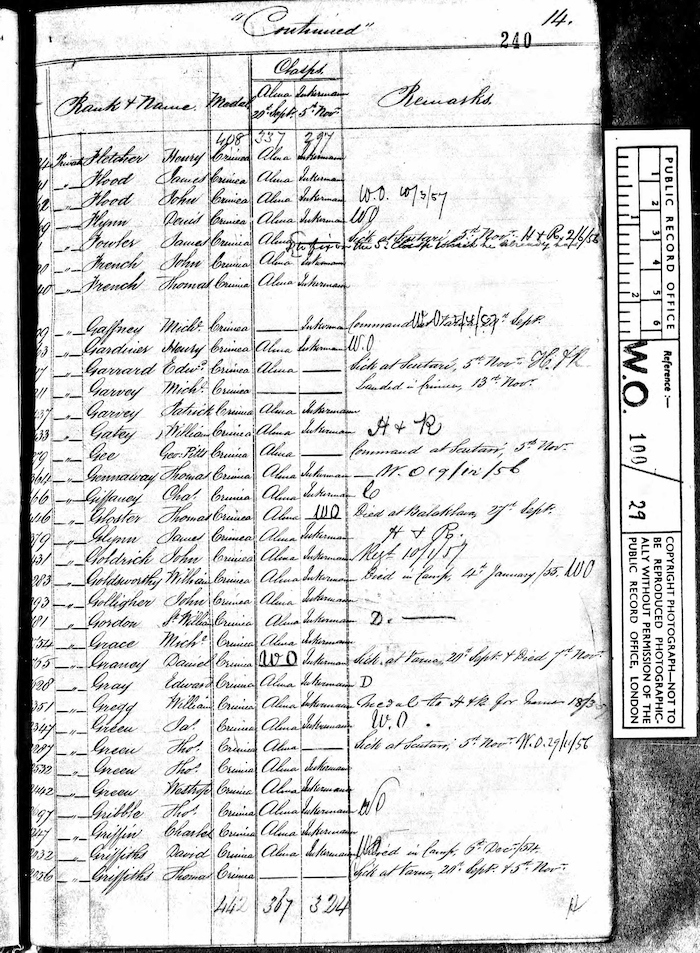 "Continued" 14.
240
Clasps.
Rank & Name. Medal Alma 20th Sept. Inkerman 5th Nov. Remarks.
408 337 297
Private Fletcher Henry Crimea Alma Inkerman
" Flood James Crimea Alma Inkerman
" Flood John Crimea Alma Inkerman W.O. 10/3/57
" Flynn Denis Crimea Alma Inkerman WO
" Fowler James Crimea Alma Sick at Scutari 5th Nov. H & R, 2/6/56
" French John Crimea Alma Inkerman
" French Thomas Crimea Alma Inkerman
" Gaffney Michl. Crimea — Inkerman Command 20th Sept.
" Gardiner Henry Crimea Alma Inkerman W.O
" Garrard Edwd. Crimea Alma — Sick at Scutari, 5th Nov. H. & R
" Garvey Michl. Crimea — — Landed in Crimea, 13th Nov.
" Garvey Patrick Crimea Alma Inkerman
" Gatey William Crimea Alma Inkerman H & R
" Gee Geo. Pitts Crimea Alma — Command at Scutari, 5th Nov.
" Gennaway Thomas Crimea Alma Inkerman — W.O 19/12/56
" Giffancy Chas. Crimea Alma Inkerman
" Gloster Thomas Crimea Alma WO Died at Balaklava, 27th Sept.
" Glynn James Crimea Alma Inkerman H & R.
" Goldrick John Crimea Alma Inkerman Regt. 10/1/57
" Goldsworthy William Crimea Alma Inkerman Died in Camp, 4th January/55. WO
" Golligher John Crimea Alma Inkerman
" Gordon William Crimea Alma Inkerman D. —
" Grace Michl. Crimea Alma Inkerman
" Graney Daniel Crimea WO Inkerman Sick at Varna, 20th Sept. & Died 7th Nov.
" Gray Edward Crimea Alma Inkerman D
" Gregg William Crimea Alma Inkerman Medal to H & R for 18/3
" Green Jas. Crimea Alma Inkerman W.O.
" Green Thos. Crimea Alma — Sick at Scutari 5th Nov. W.O. 29/11/56
" Green Thos. Crimea Alma Inkerman
" Green Crimea Alma Inkerman
" Gribble Thos. Crimea Alma Inkerman WO
" Griffin Charles Crimea Alma Inkerman
" Griffiths David Crimea Alma Inkerman Died in Camp, 6th Dec./54.
" Griffiths Thomas Crimea — — Sick at Varna, 20th Sept. & 5th Nov.
442 367 324
PUBLIC RECORD OFFICE
1 2 3 4 5 6
1 2
Reference :-
W.O. 100 / 29
COPYRIGHT PHOTOGRAPH—NOT TO
BE REPRODUCED PHOTOGRAPHIC-
ALLY WITHOUT PERMISSION OF THE
PUBLIC RECORD OFFICE, LONDON